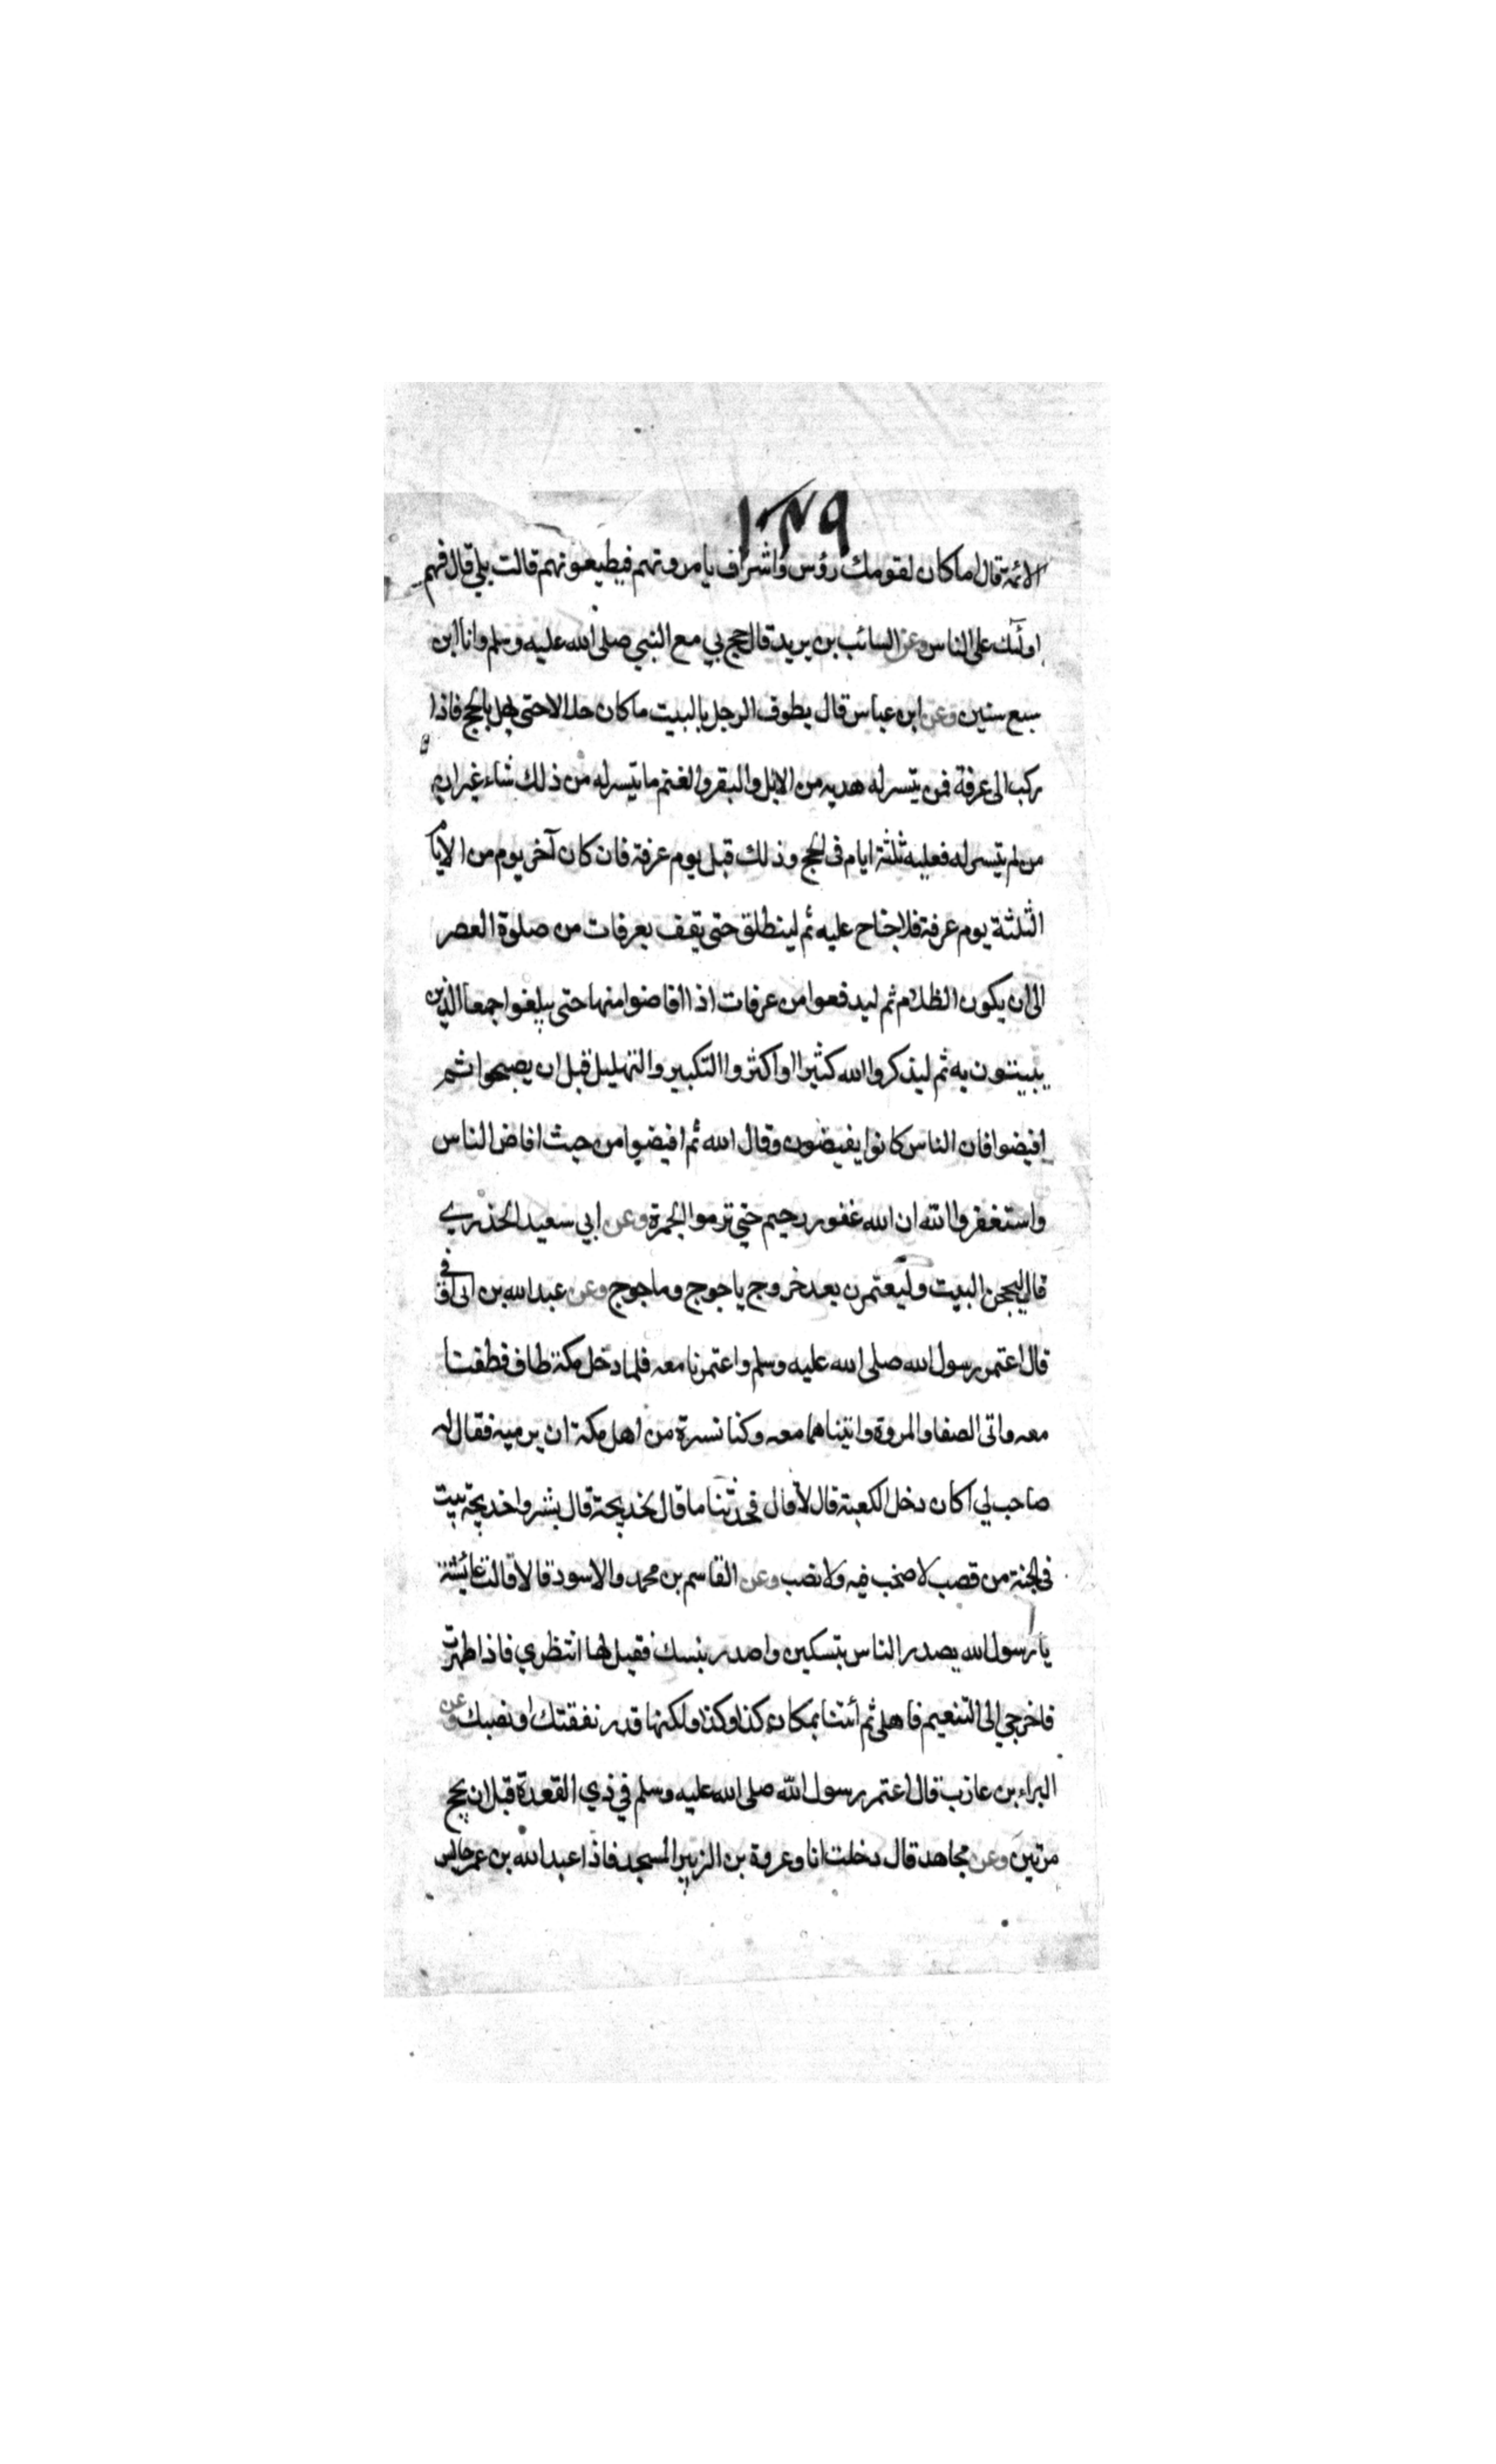 ١٣٧٩
الائمة قال اما كان لقومك رؤس واشراف يامرونهم فيطيعونهم قالت بلى قال فهم
اولئك على الناس وعن السائب بن يزيد قال حج بي مع النبي صلى الله عليه وسلم وانا ابن
سبع سنين وعن ابن عباس قال يطوف الرجل بالبيت ما كان حلالا حتى يهل بالحج فاذا
ركب الى عرفة فمن تيسر له هديه من الابل والبقر والغنم ما تيسر له من ذلك شاء غير ان
من لم يتيسر له فعليه ثلثة ايام في الحج وذلك قبل يوم عرفة فان كان آخر يوم من الايام
الثلثة يوم عرفة فلا جناح عليه ثم لينطلق حتى يقف بعرفات من صلوة العصر
الى ان يكون الظلام ثم ليدفعوا من عرفات اذا افاضوا منها حتى يبلغوا جمعا الذين
يبيتون به ثم ليذكروا الله كثيرا او اكثروا التكبير والتهليل قبل ان يصبحوا ثم
افيضوا فان الناس كانوا يفيضون وقال الله ثم افيضوا من حيث افاض الناس
واستغفروا الله ان الله غفور رحيم حتى ترموا الجمرة وعن ابي سعيد الخدري
قال ليحجن البيت وليعتمرن بعد خروج ياجوج وماجوج وعن عبد الله بن ابي اوفى
قال اعتمر رسول الله صلى الله عليه وسلم واعتمرنا معه فلما دخل مكة طاف فطفنا
معه واتى الصفا والمروة واتيناهما معه وكنا نسترة من اهل مكة ان يرميه فقال له
صاحب لي اكان دخل الكعبة قال لا قال فحدثنا ما قال لخديجة قال بشروا خديجة ببيت
في الجنة من قصب لا صخب فيه ولا نصب وعن القاسم بن محمد والاسود قالا قالت عائشة
يا رسول الله يصدر الناس بنسكين واصدر بنسك فقيل لها انتظري فاذا طهرت
فاخرجي الى التنعيم فاهلي ثم أئتنا بمكان كذا وكذا ولكنها قدر نفقتك او نصبك وعن
البراء بن عازب قال اعتمر رسول الله صلى الله عليه وسلم في ذي القعدة قبل ان يحج
مرتين وعن مجاهد قال دخلت انا وعروة بن الزبير المسجد فاذا عبد الله بن عمر جالس